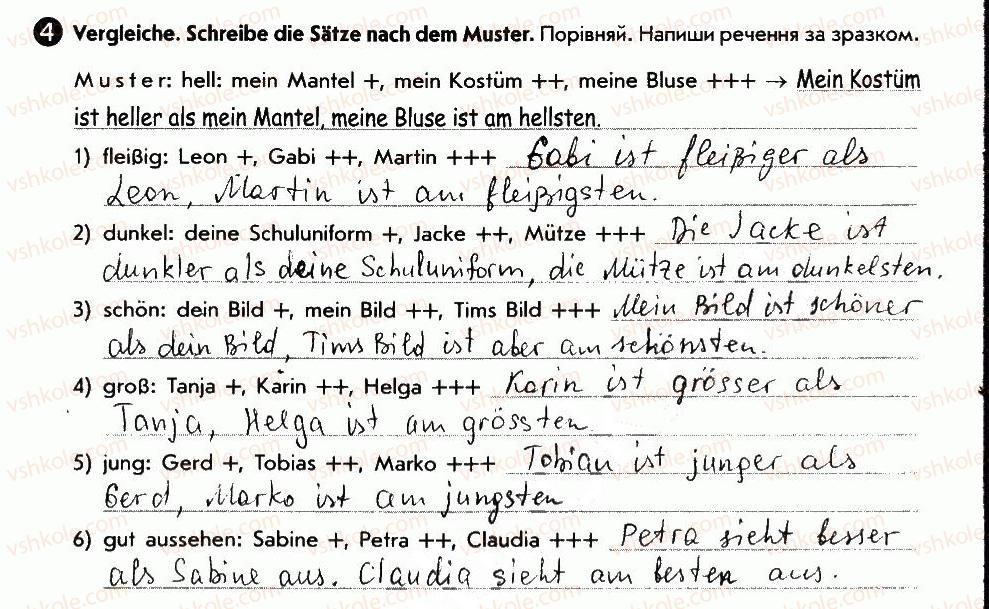 4 Vergleiche. Schreibe die Sätze nach dem Muster. Порівняй. Напиши речення за зразком.
Muster: hell: mein Mantel +, mein Kostüm ++, meine Bluse +++ → Mein Kostüm
ist heller als mein Mantel, meine Bluse ist am hellsten.
1) fleißig: Leon +, Gabi ++, Martin +++ Gabi ist fleißiger als
Leon, Martin ist am fleißigsten.
2) dunkel: deine Schuluniform +, Jacke ++, Mütze +++ Die Jacke ist
dunkler als deine Schuluniform, die Mütze ist am dunkelsten.
3) schön: dein Bild +, mein Bild ++, Tims Bild +++ Mein Bild ist schöner
als dein Bild, Tims Bild ist aber am schönsten.
4) groß: Tanja +, Karin ++, Helga +++ Karin ist grösser als
Tanja, Helga ist am grössten
5) jung: Gerd +, Tobias ++, Marko +++ Tobian ist junger als
Gerd, Marko ist am jungsten
6) gut aussehen: Sabine +, Petra ++, Claudia +++ Petra sieht besser
als Sabine aus. Claudia sieht am besten aus.